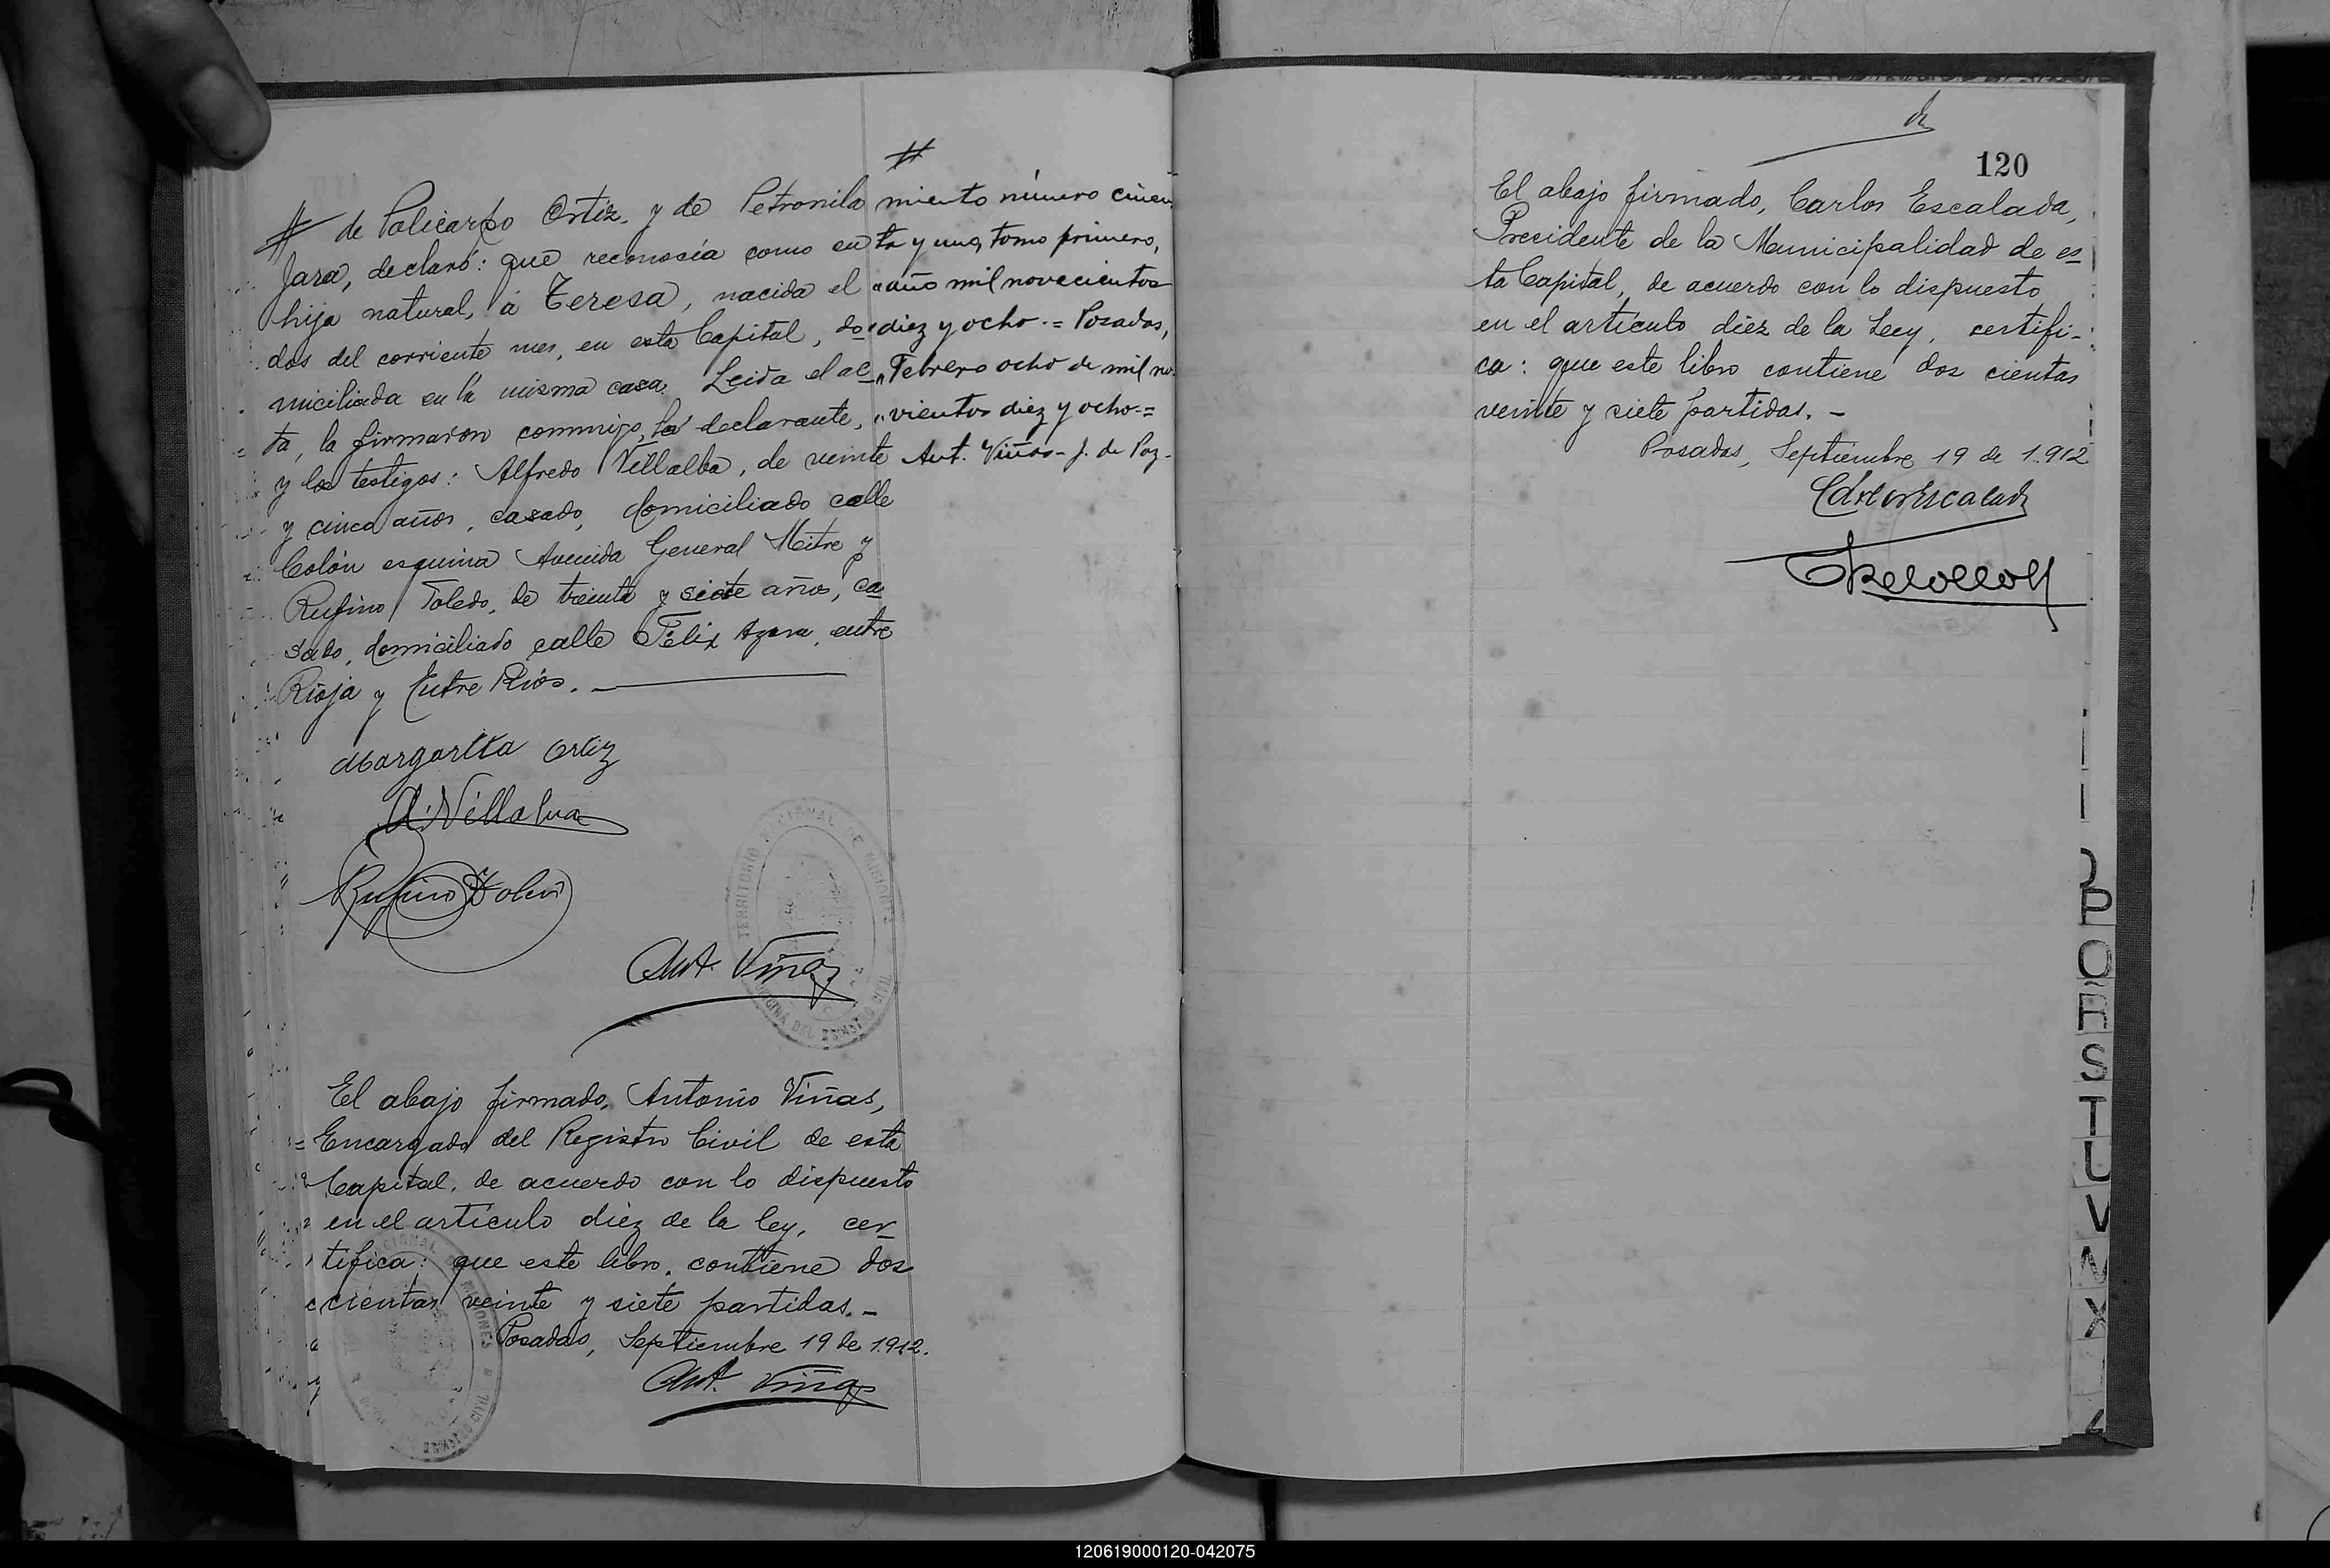 # de Policarpo Ortiz, y de Petronila
Jara, declaró: que reconosía como su
hija natural, á Teresa, nacida el
dos del corriente mes, en esta Capital, do
miciliada en la misma casa. Leida el ac
ta, la firmaron conmigo, la declarante,
y los testigos: Alfredo Villalba, de veinte
y cinco años, casado, domiciliado calle
Colón esquina Avenida General Mitre y
Rufino Toledo, de treinta y siete años, ca
sado, domiciliado calle Félix Azara, entre
Rioja y Entre Rios. —
Margarita Ortiz
A. Villalva
Rufino Toledo
Ant. Viñas
TERRITORIO NACIONAL DE MISIONES
OFICINA DEL REGISTRO CIVIL
El abajo firmado, Antonio Viñas,
Encargado del Registro Civil de esta
Capital, de acuerdo con lo dispuesto
en el artículo diez de la ley, cer
tifica: que este libro, contiene dos
cientas veinte y siete partidas. -
Posadas, Septiembre 19 de 1.912.
Ant. Viñas
#
miento número cincuen
ta y uno, tomo primero,
año mil novecientos
diez y ocho. = Posadas,
Febrero ocho de mil no
vientos diez y ocho =
Ant. Viñas - J. de Paz -
120
El abajo firmado, Carlos Escalada,
Presidente de la Municipalidad de es
ta Capital, de acuerdo con lo dispuesto
en el artículo diez de la Ley, certifi-
ca: que este libro contiene dos cientas
veinte y siete partidas. -
Posadas, Septiembre 19 de 1.912
Carlos Escalada
P
Q
R
S
T
U
V
X
120619000120-042075